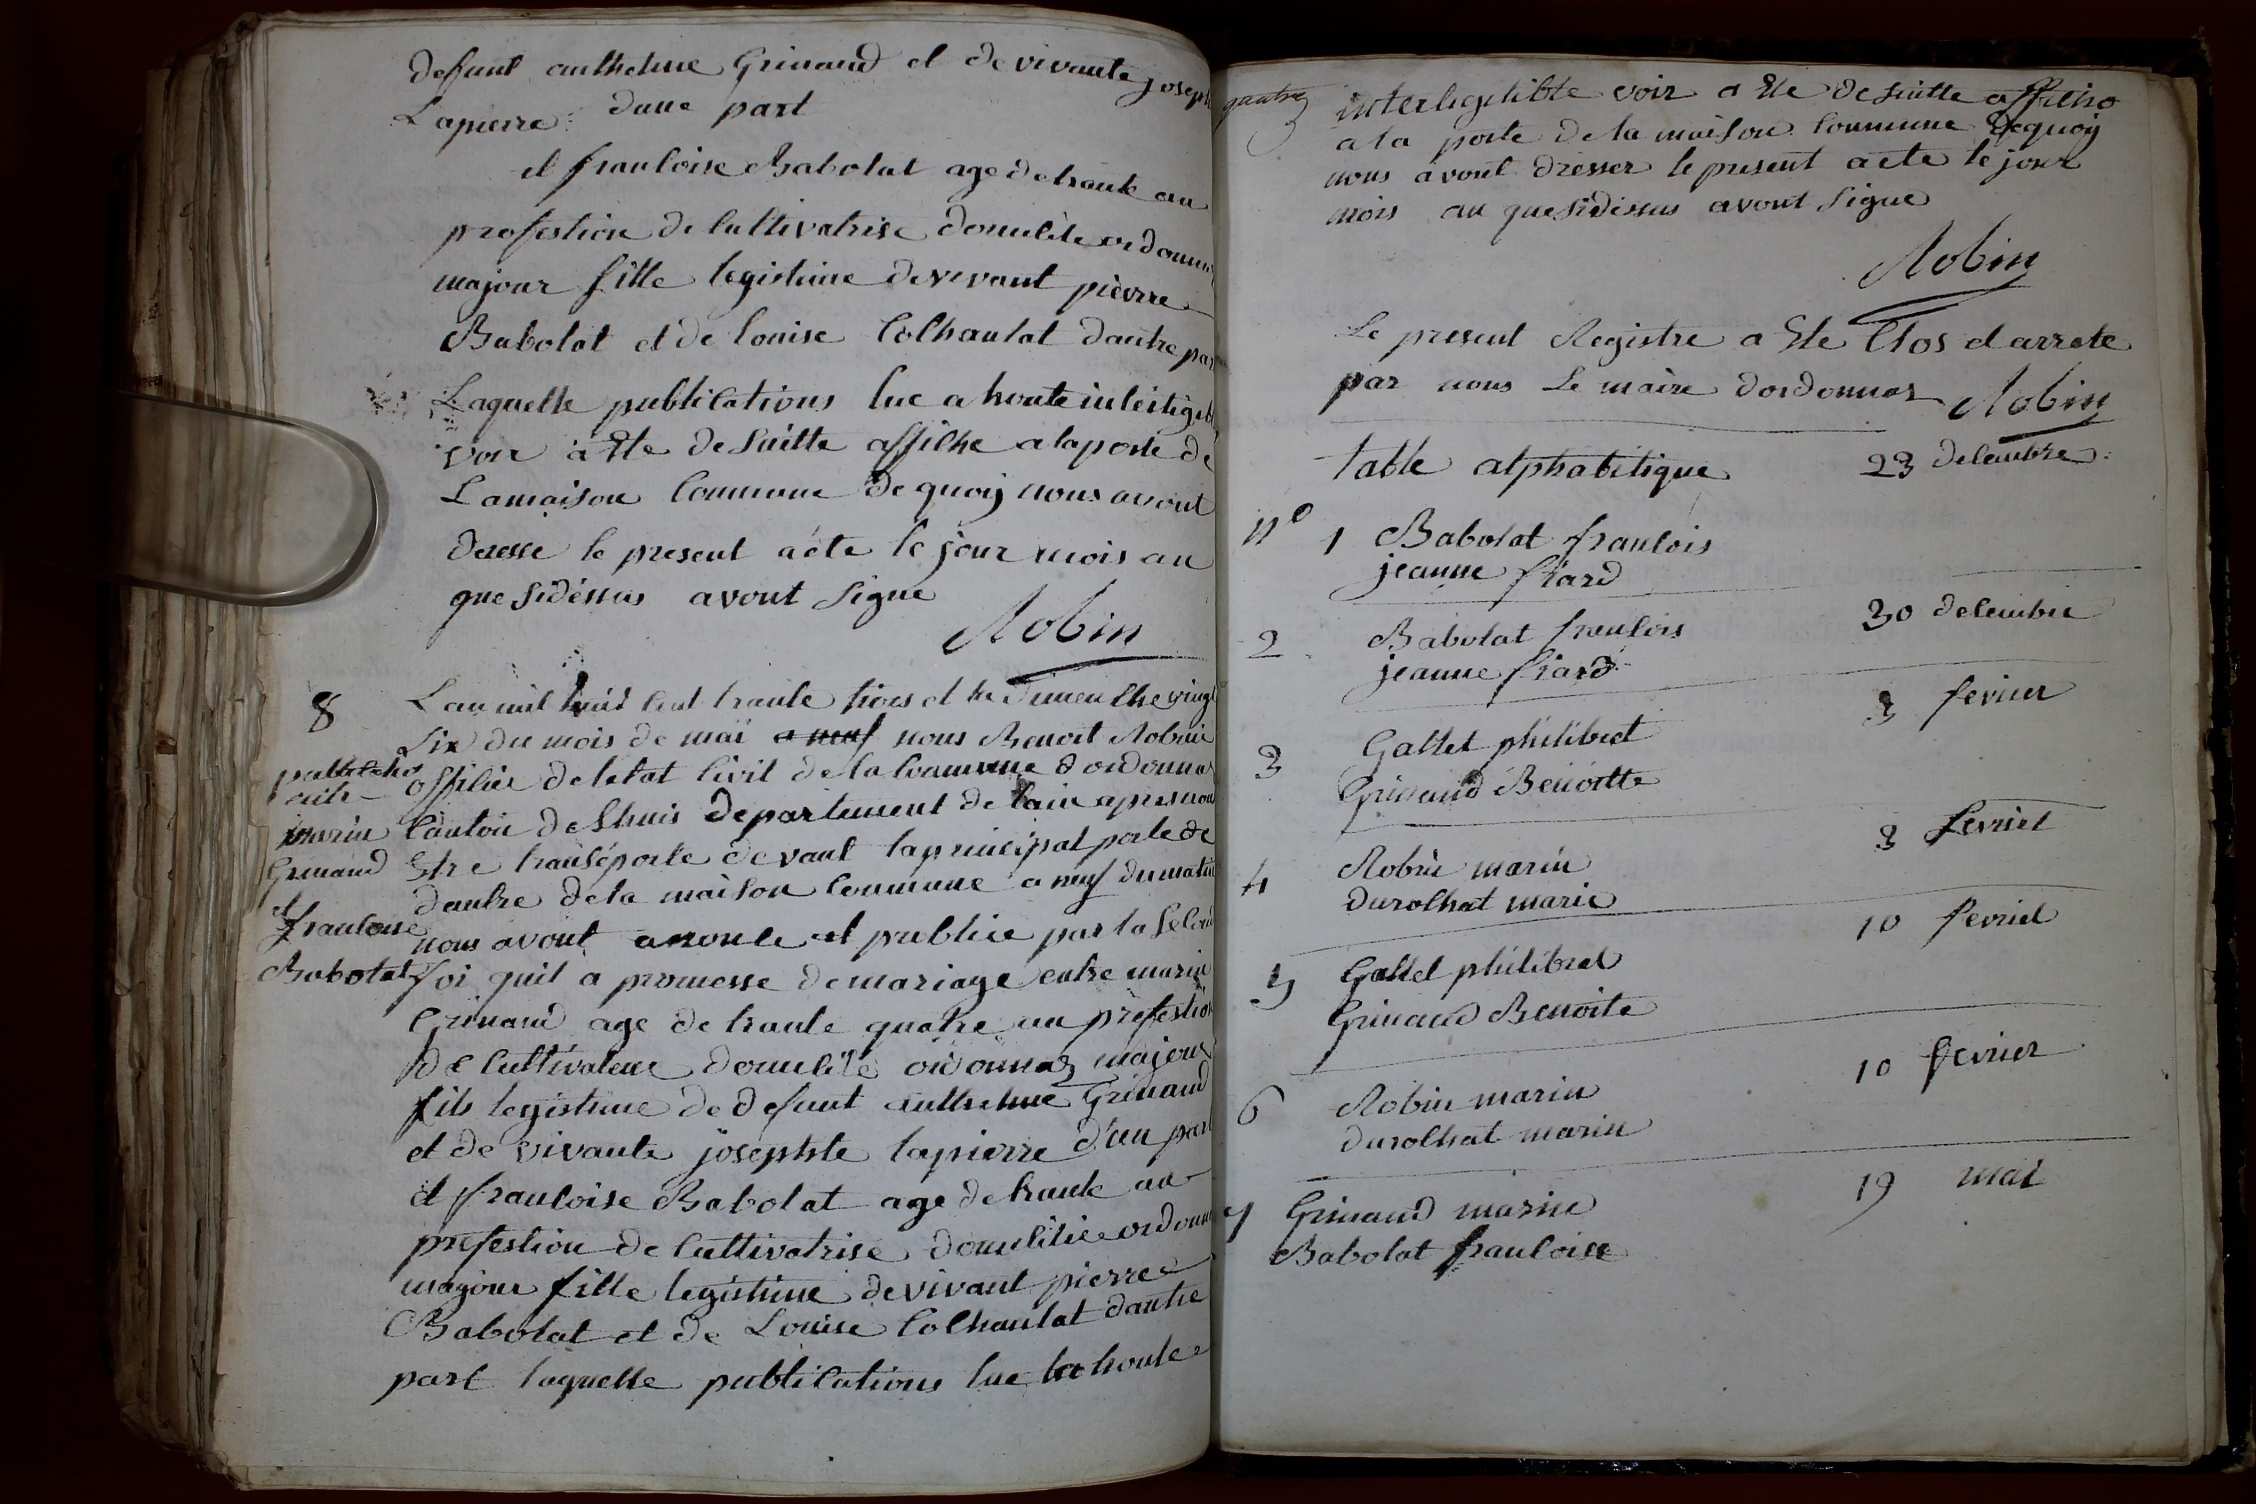 defunt anthelme Grinand et de vivante joseph
Lapierre dune part
et francoise Babolat age de trante an
profestion de cultivatrise domicile ordonna
majour fille legistime de vivant pierre
Babolat et de louise Cochaulat dautre par
Laquelle publications lue a haute inteiligeb
voix a Ete de Suitte affiche a la porte de
La maison Commune de quoy nous avont
dresse le present acte le jour mois an
que Sidessus avont Signe
Robin
8
Lan mil huit cent trante trois et le dimenche vingt
Six du mois de mai a neuf nous Benoit Robin
publicho
officier de letat Civil de la Commune d ordonnas
Canton de Lhuis departement de lain apres nous
marin
Grinand
Etre transeporte devant la principal porte de
dentre de la maison Commune a neuf du matin
et
francoise
nous avont anonce et publie par la Secon
Babolat
foi quil a promesse de mariage entre marin
Grinand age de trante quatre an profestion
de Cultivateur domicile ordonnas majour
fils legistime de defunt anthelme Grinand
et de vivante josephte lapierre d'un part
et francoise Babolat age de trante an
profestion de Cultivatrise domicilie ordonna
majour fille legistime de vivant pierre
Babolat et de Louise Cochaulat dautre
part laquelle publications lue la haute
quatre
interlegelible voix a Ete de Suitte affiche
a la porte de la maison Commune de quoy
nous avont dresser le present acte le jour
mois an que Sidessus avont Signe
Robin
Le present Registre a Ete Clos et arrete
par nous Le maire dordonnas Robin
table alphabetique 23 decembre
no 1 Babolat francois
jeanne fiard
30 decembre
2 Babolat francois
jeanne fiard
3 fevrier
3 Gallet philibert
Grinand Benoitte
3 fevrier
4 Robin marin
durochat marie
10 fevrier
5 Gallet philibert
Grinand Benoite
10 fevrier
6 Robin marin
durochat marin
19 mai
7 Grinand marin
Babolat francoise